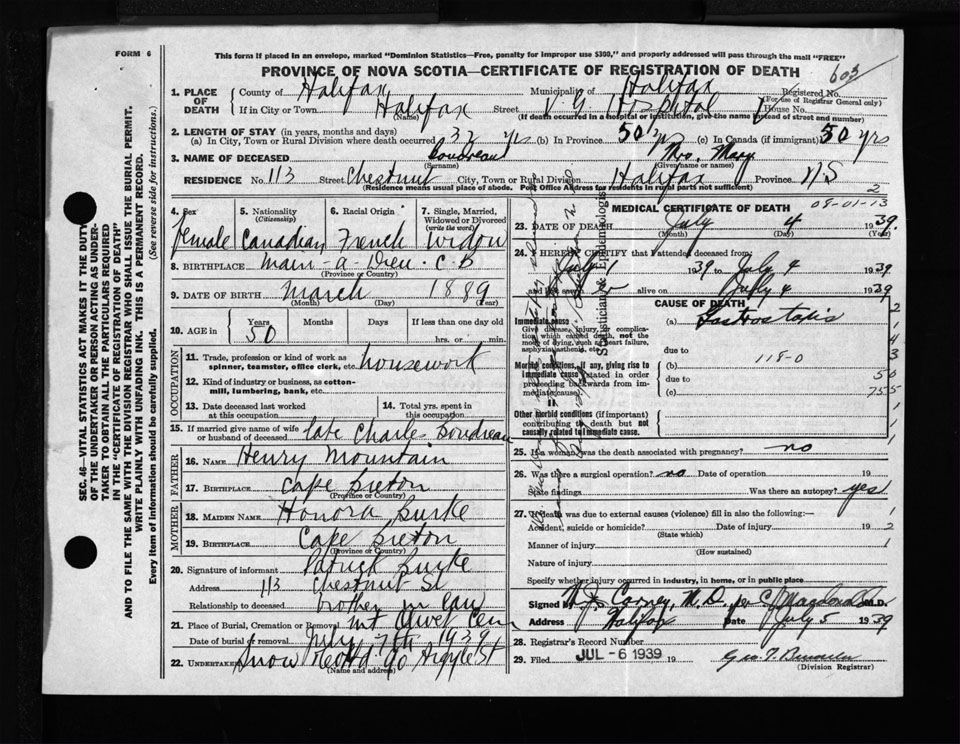 FORM 6
This form if placed in an envelope, marked "Dominion Statistics—Free, penalty for improper use $300," and properly addressed will pass through the mail "FREE"
PROVINCE OF NOVA SCOTIA—CERTIFICATE OF REGISTRATION OF DEATH
603
1. PLACE OF DEATH
County of Halifax
Municipality of Halifax
Registered No.
(For use of Registrar General only)
If in City or Town Halifax Street V. G. Hospital House No.
(Name)
(If death occurred in a hospital or institution, give the name instead of street and number)
2. LENGTH OF STAY (in years, months and days)
(a) In City, Town or Rural Division where death occurred 32 yrs (b) In Province 50 yr (c) In Canada (if immigrant) 50 yrs
3. NAME OF DECEASED Boudreau Mrs. Mary
(Surname) (Given name or names)
RESIDENCE No. 113 Street Chestnut City, Town or Rural Division Halifax Province N.S
(Residence means usual place of abode. Post Office Address for residents in rural parts not sufficient)
2
4. Sex
female
5. Nationality
(Citizenship)
Canadian
6. Racial Origin
French
7. Single, Married, Widowed or Divorced
(write the word)
widow
8. BIRTHPLACE Main-a-Dieu. C.B
(Province or Country)
9. DATE OF BIRTH March 1889
(Month) (Day) (Year)
10. AGE in
Years Months Days If less than one day old
50
hrs. or min.
OCCUPATION
11. Trade, profession or kind of work as spinner, teamster, office clerk, etc. housework
12. Kind of industry or business, as cotton-mill, lumbering, bank, etc.
13. Date deceased last worked at this occupation
14. Total yrs. spent in this occupation
15. If married give name of wife or husband of deceased late Charle Boudreau
FATHER
16. Name Henry Mountain
17. Birthplace Cape Breton
(Province or Country)
MOTHER
18. Maiden Name Honora Burke
19. Birthplace Cape Breton
(Province or Country)
20. Signature of informant Patrick Burke
Address 113 Chestnut St
Relationship to deceased brother in law
21. Place of Burial, Cremation or Removal Mt Olivet Cem
Date of burial or removal July 7th 1939
22. Undertaker Snow 90 Argyle St
(Name and address)
MEDICAL CERTIFICATE OF DEATH
08-01-13
23. DATE OF DEATH July 4 1939.
(Month) (Day) (Year)
24. I HEREBY CERTIFY that I attended deceased from
July 1 1939 to July 4 1939
and last saw alive on July 4 1939
CAUSE OF DEATH
Immediate cause
Give disease, injury, or complication which caused death, not the mode of dying, such as heart failure, asphyxia, asthenia, etc.
(a) Gastrostaxis
due to
Morbid conditions, if any, giving rise to immediate cause (stated in order proceeding backwards from immediate cause).
(b) 118-0
due to
(c)
II
Other morbid conditions (if important) contributing to death but not causally related to immediate cause.
25. If a woman, was the death associated with pregnancy? no
26. Was there a surgical operation? no Date of operation 19
State findings Was there an autopsy? yes
27. If death was due to external causes (violence) fill in also the following:
Accident, suicide or homicide? Date of injury 19
(State which)
Manner of injury
(How sustained)
Nature of injury
Specify whether injury occurred in industry, in home, or in public place
Signed by W. J. Carney, M.D. per M.D.
Address Halifax Date July 5 1939
28. Registrar's Record Number
29. Filed JUL - 6 1939 19
(Division Registrar)
Statistician & Epidemiologist
SEC. 46—VITAL STATISTICS ACT MAKES IT THE DUTY OF THE UNDERTAKER OR PERSON ACTING AS UNDERTAKER TO OBTAIN ALL THE PARTICULARS REQUIRED IN THE "CERTIFICATE OF REGISTRATION OF DEATH" AND TO FILE THE SAME WITH THE DIVISION REGISTRAR WHO SHALL ISSUE THE BURIAL PERMIT.
WRITE PLAINLY WITH UNFADING INK. THIS IS A PERMANENT RECORD.
Every item of information should be carefully supplied. (See reverse side for instructions.)